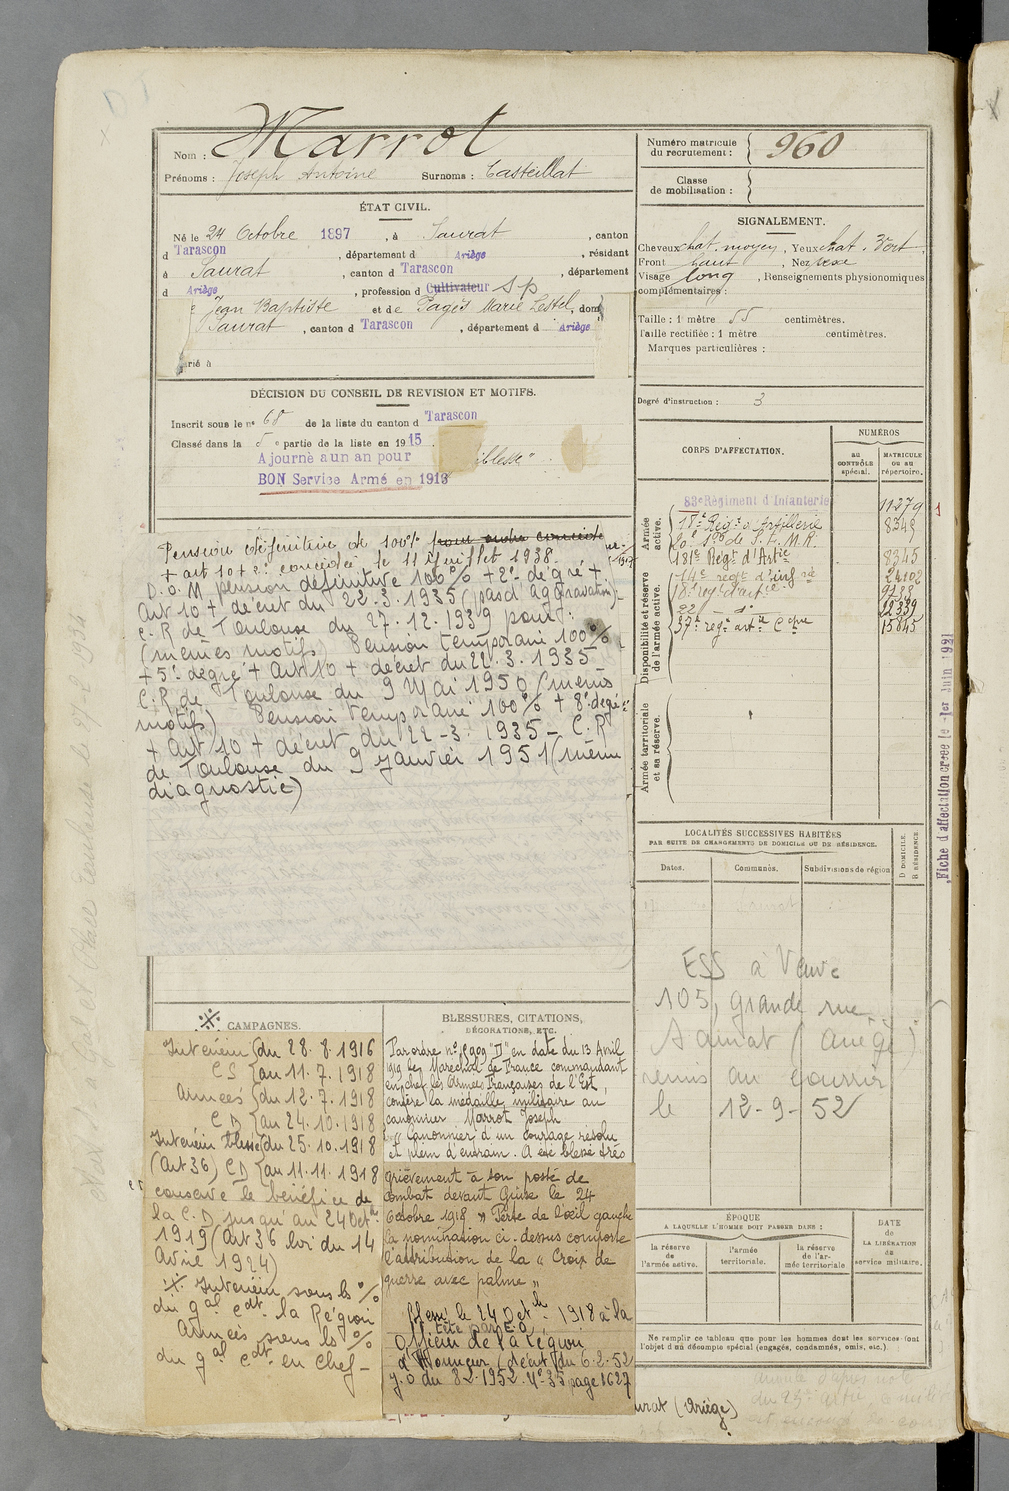 Nom : Marrot
Prénoms : Joseph Antoine Surnoms : Casteillat
Numéro matricule du recrutement : 960
Classe de mobilisation :
ÉTAT CIVIL.
Né le 24 Octobre 1897, à Saurat, canton
d Tarascon, département d Ariège, résidant
à Saurat, canton d Tarascon, département
d Ariège, profession d Cultivateur S p
Jean Baptiste et de Pagès Marie Lestel, dom
Saurat, canton d Tarascon, département d Ariège
arié à
SIGNALEMENT.
Cheveux chat. moyen, Yeux chat. Vert
Front haut, Nez
Visage long, Renseignements physionomiques
complémentaires :
Taille : 1 mètre 55 centimètres.
Taille rectifiée : 1 mètre centimètres.
Marques particulières :
Degré d'instruction : 3
DÉCISION DU CONSEIL DE REVISION ET MOTIFS.
Inscrit sous le n° 68 de la liste du canton d Tarascon
Classé dans la 5e partie de la liste en 1915.
Ajourné a un an pour iblesse"
BON Service Armé en 1916
Pension définitive de 100%
+ art 10 + 2° concédée le 11 Juillet 1938.
D. o. M pension définitive 100% + 2e degré +
Art 10 + décret du 22.3.1935 (pas d'aggravation)
C. R de Toulouse du 27.12.1939 pour :
(mêmes motifs) Pension temporaire 100%
+ 5e degré + Art 10 + décret du 22.3.1935
C.R de Toulouse du 9 Mai 1950 (mêmes
motifs) Pension temporaire 100% + 8e degré
+ Art 10 + décret du 22-3.1935 - C.R
de Toulouse du 9 Janvier 1951 (même
diagnostic)
CORPS D'AFFECTATION.
NUMÉROS
au CONTRÔLE spécial.
MATRICULE ou au répertoire.
Armée active.
83e Régiment d'Infanterie 11379
18e Rég. d'Artillerie 8348
181e Régt d'Artie 8345
Disponibilité et réserve de l'armée active.
14e régt d'inf 24102
18e régt d'artie
22 - d° 22339
37e régt artie 15845
Armée territoriale et sa réserve.
Fiche d'affectation créée le 1er Juin 1931
LOCALITÉS SUCCESSIVES HABITÉES
PAR SUITE DE CHANGEMENTS DE DOMICILE OU DE RÉSIDENCE.
Dates. Communes. Subdivisions de région
D DOMICILE. R RÉSIDENCE.
ESS à Veuve
105, Grande rue
Saurat (Ariège)
remis au courrier
le 12-9-52
CAMPAGNES.
Intérieur du 28.8.1916
CS au 11.7.1918
Armées du 12.7.1918
C D au 24.10.1918
Intérieur blessé du 25.10.1918
(Art 36) CD au 11.11.1918
conserve le bénéfice de
la C.D jusqu'au 24 Octe
1919 (Art 36 loi du 14
Avril 1924)
Intérieur sous le %
du gal cdt la Région
Armées sous le %
du gal cdt en Chef -
BLESSURES, CITATIONS,
DÉCORATIONS, ETC.
Par ordre n° "D" en date du 13 Avril
1919 le Maréchal de France commandant
en chef les Armées Françaises de l'Est,
confère la médaille militaire au
canonnier Marrot Joseph
"Canonnier d'un courage résolu
et plein d'entrain. A été blessé très
grièvement à son poste de
combat devant Guise le 24
Octobre 1918 » Perte de l'œil gauche
la nomination ci-dessus comporte
l'attribution de la « Croix de
guerre avec palme »
Blessé le 24 Octb 1918 à la
tête par E.O
Officier de la Légion
d'Honneur (décret du 6.2.52
J.O du 8.2.1952. N° 35 page 1627
ÉPOQUE
A LAQUELLE L'HOMME DOIT PASSER DANS :
la réserve de l'armée active.
l'armée territoriale.
la réserve de l'armée territoriale
DATE de LA LIBÉRATION du service militaire.
Ne remplir ce tableau que pour les hommes dont les services font
l'objet d'un décompte spécial (engagés, condamnés, omis, etc.).
urat (Ariège)